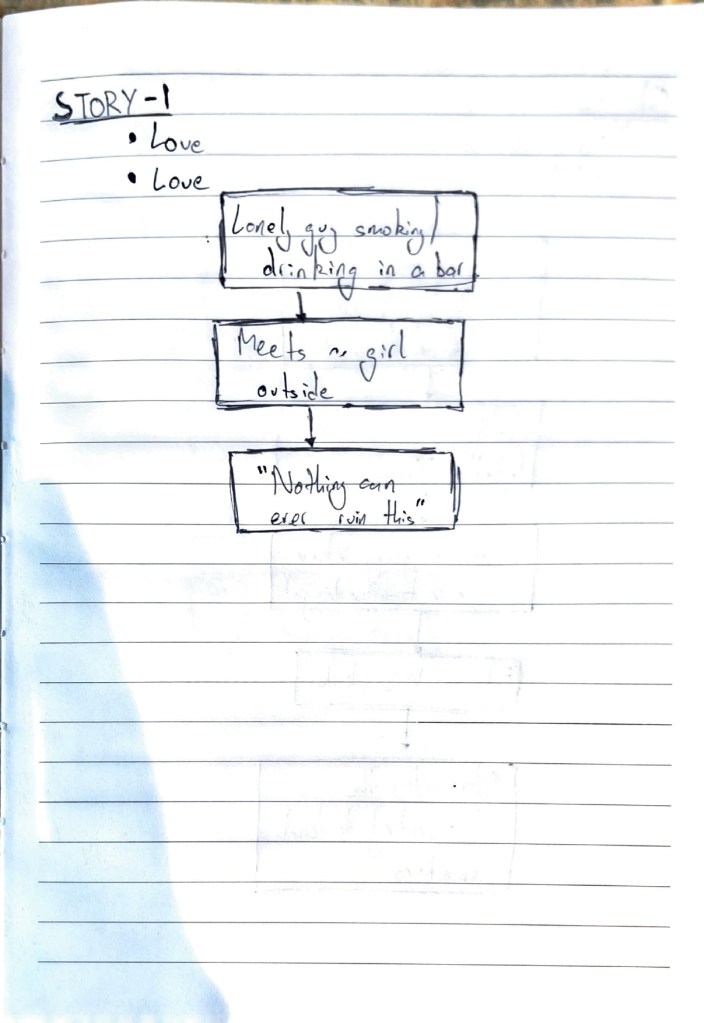 STORY-1
• Love
• Love
Lonely guy smoking/
drinking in a bar
Meets a girl
outside
"Nothing can
ever ruin this"